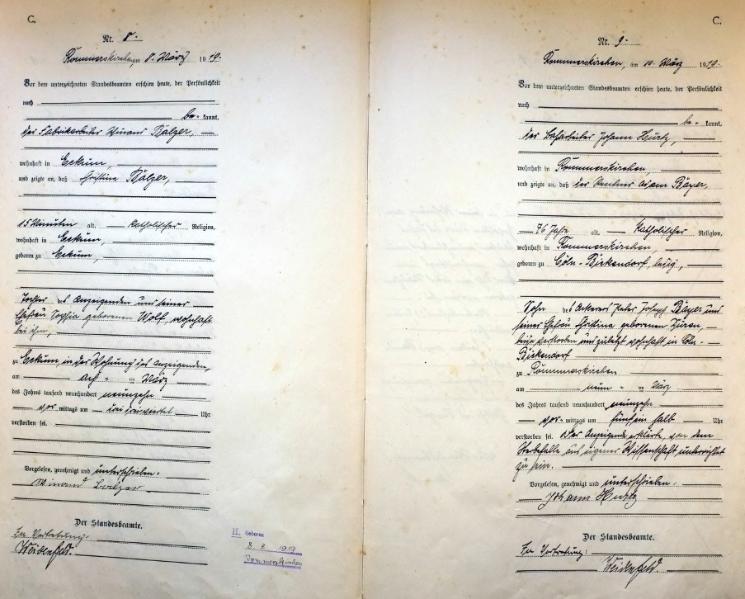 C.
Nr. 8.
Rommerskirchen, 8. März 1919.
Vor dem unterzeichneten Standesbeamten erschien heute, der Persönlichkeit
nach
be-kannt,
der Fabrikarbeiter Winand Balzer,
wohnhaft in Eckum,
und zeigte an, daß Christina Balzer,
15 Minuten alt, Katholischer Religion,
wohnhaft in Eckum,
geboren zu Eckum,
Tochter des Anzeigenden und seiner
Ehefrau Sophia geborenen Wolf, wohnhaft
bei ihm,
zu Eckum, in der Wohnung des Anzeigenden,
am acht März
des Jahres tausend neunhundert neunzehn
vor mittags um drei Uhr
verstorben sei.
Vorgelesen, genehmigt und unterschrieben.
Winand Balzer
Der Standesbeamte.
In Vertretung:
Weidenfeld.
H. Geboren
8. 3. 1919
Rommerskirchen
C.
Nr. 9.
Rommerskirchen, am 10. März 1919.
Vor dem unterzeichneten Standesbeamten erschien heute, der Persönlichkeit
nach
be-kannt,
der Johann Hurtz,
wohnhaft in Rommerskirchen,
und zeigte an, daß der Rentner Adam Bäyer,
76 Jahr alt, Katholischer Religion,
wohnhaft in Rommerskirchen
geboren zu Cöln-Bickendorf,
Sohn des Ackerers Peter Joseph Bäyer und
seiner Ehefrau Christina geborenen
beide verstorben und zuletzt wohnhaft in Cöln-
Bickendorf
zu Rommerskirchen
am neun März
des Jahres tausend neunhundert neunzehn
vor mittags um fünf ein halb Uhr
verstorben sei. Der Anzeigende erklärte, von dem
Sterbefalle aus eigener Wissenschaft unterrichtet
zu sein.
Vorgelesen, genehmigt und unterschrieben.
Johann Hurtz
Der Standesbeamte.
In Vertretung:
Weidenfeld.